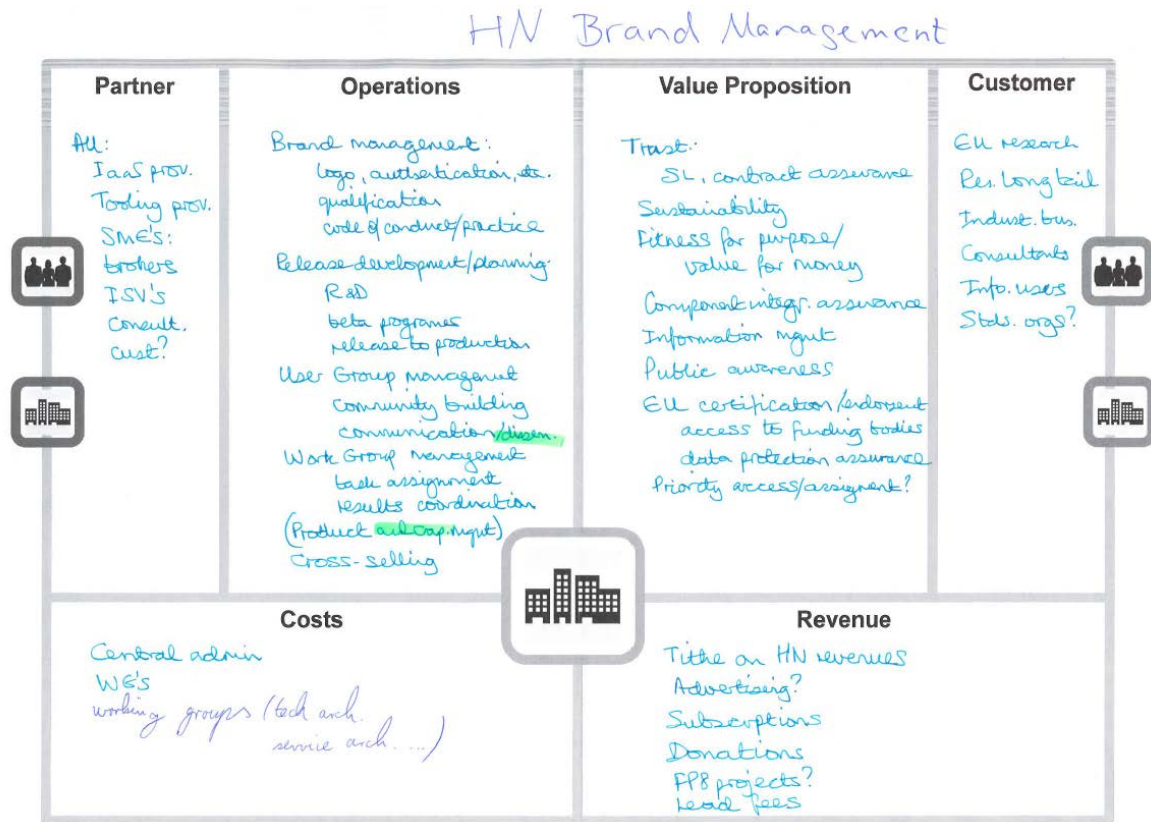 HN Brand Management
Partner
All:
IaaS prov.
Tooling prov.
SME's:
brokers
ISV's
Consult.
Cust?
Operations
Brand management:
logo, authentication, etc.
qualification
code of conduct/practice
Release development/planning:
R&D
beta programes
release to production
User Group management
community building
communication/dissem.
Work Group Management
task assignment
results coordination
(Product mgmt)
Cross-selling
Value Proposition
Trust:
SL, contract assurance
Sustainability
Fitness for purpose/
value for money
Component integr. assurance
Information mgmt
Public awareness
EU certification/endorsent
access to funding bodies
data protection assurance
Priority access/assigment?
Customer
EU research
Res. Long tail
Indust. bus.
Consultants
Info. users
Stds. orgs?
Costs
Central admin
WG's
working groups (tech arch.
service arch. ....)
Revenue
Tithe on HN revenues
Advertising?
Subscriptions
Donations
FP8 projects?
Lead fees